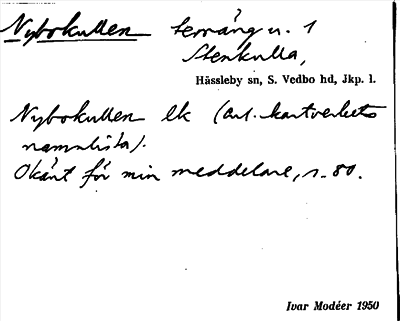 Nybokullen terräng u. 1
Stenkulla,
Hässleby sn, S. Vedbo hd, Jkp. l.
Nybokullen ek (art. kartverkets
namnlista).
Okänt för min meddelare, s. 80.
Ivar Modéer 1950